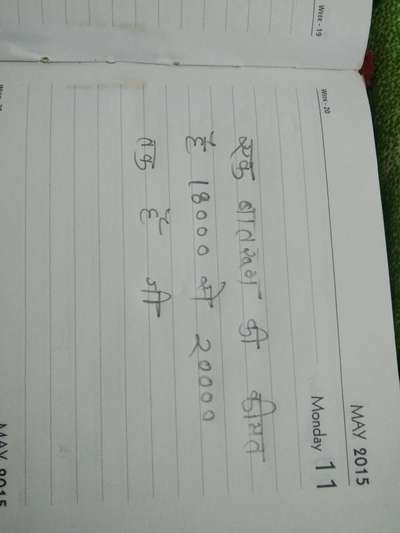 WEEK - 19
WEEK - 20
MAY 2015
Monday 11
एक की कीमत
है 18000 से 20000
तक है जी
MAY 2015